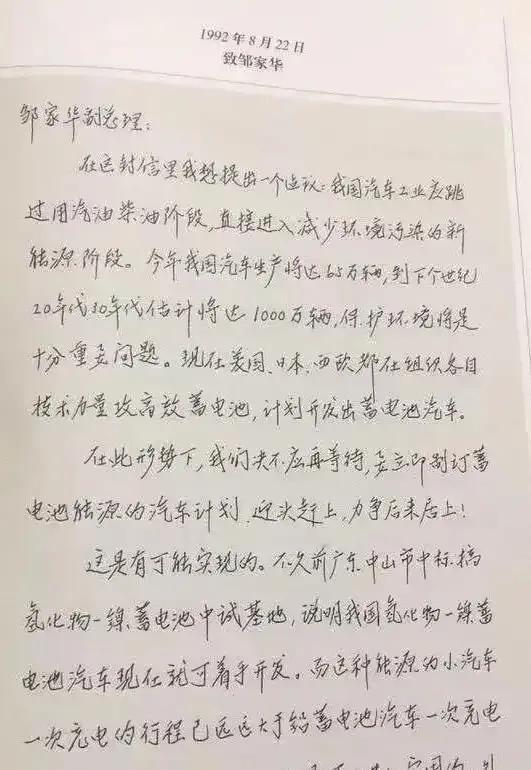 1992 年 8 月 22 日
致邹家华
邹家华副总理：
在这封信里我想提出一个建议：我国汽车工业应跳
过用汽油柴油阶段，直接进入减少环境污染的新
能源阶段。今年我国汽车生产将达65万辆，到下个世纪
20年代30年代估计将达1000万辆，保护环境将是
十分重要问题。现在美国、日本、西欧都在组织各自
技术力量攻高效蓄电池，计划开发出蓄电池汽车。
在此形势下，我们决不应再等待，要立即制订蓄
电池能源的汽车计划，迎头赶上，力争后来居上！
这是有可能实现的。不久前广东中山市中标搞
氢化物—镍蓄电池中试基地，说明我国氢化物—镍蓄
电池汽车现在就可着手开发。而这种能源的小汽车
一次充电的行程已远远大于铅蓄电池汽车一次充电